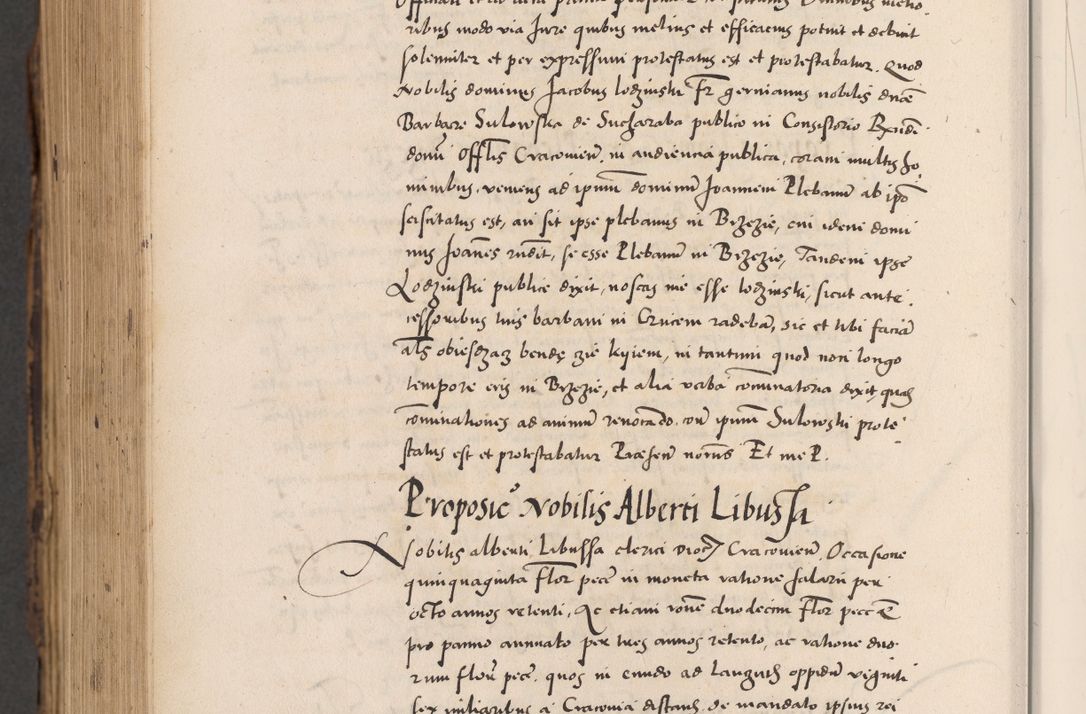 ribus modo via Jure quibus melius et efficacius potuit et debuit
solenniter et per expressum protestatus est et protestabatur. Quod
Nobilis dominus Jacobus lodzinski Fr germanus nobilis dnae
Barbare Sulowska de Sucharaba publico in Consistorio
Offlis Cracovien. in audiencia publica, coram multis ho
minibus, veniens ad ipsum dominum Joannem Plebanum ab ipo
sciscitatus est, an sit ipse plebanus in Brzezie, cui idem domi
nus Joanes rndit, se esse Plebanum in Brzezie, Tandem ipse
Lodzinski publice dixit, noscas me esse lodzinski, sicut ante
cessoribus tuis barbam in Crucem radebam, sic et tibi faciam
als obiesdzacz bendę czie kyiem, in tantum quod non longo
tempore eris in Brzezie, et alia verba cominatoria dixit, quas
cominationes ad animum revocando. ipsum Sulowski prote
status est et protestabatur Presen nonis Et me P.
Proposic Nobilis Alberti Libussa
Nobilis alberti Libussa clerici dioc Cracovien. Occasione
quinquaginta Flor pec in moneta ratione salarii per
octo annos retenti, Ac etiam rone duodecim Flor pec
pro panno annuato per tres annos retento, ac ratione duo
rum flor pec. quos in eundo ad Lanzuth oppidum viginti
sex miliaribus a Cracovia distans de mandato ipsius rei